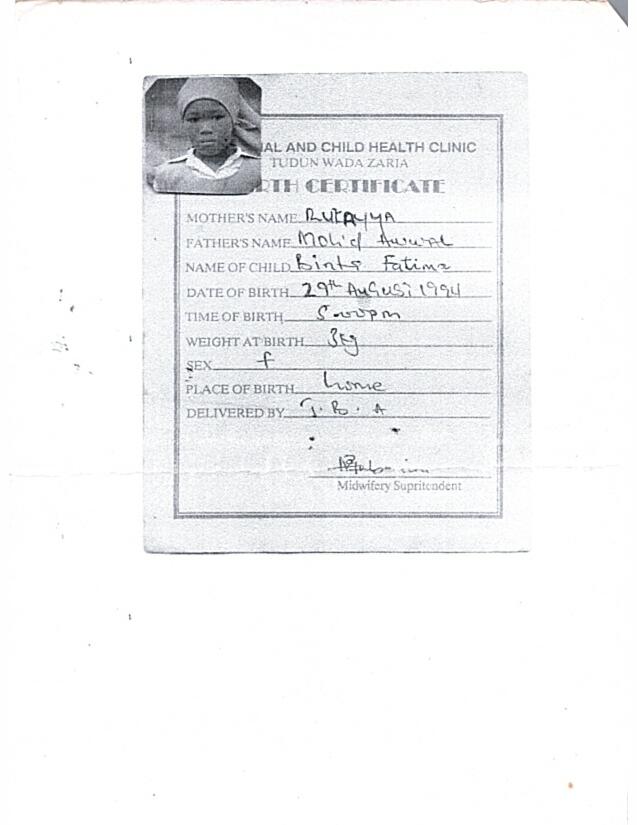 AL AND CHILD HEALTH CLINIC
TUDUN WADA ZARIA
TH CERTIFICATE
MOTHER'S NAME RUKAYYA
FATHER'S NAME Moh'd Awwal
NAME OF CHILD Binta Fatima
DATE OF BIRTH 29th AUGUST 1994
TIME OF BIRTH 5.00pm
WEIGHT AT BIRTH 3kg
SEX f
PLACE OF BIRTH home
DELIVERED BY T.B.A
Midwifery Supritendent